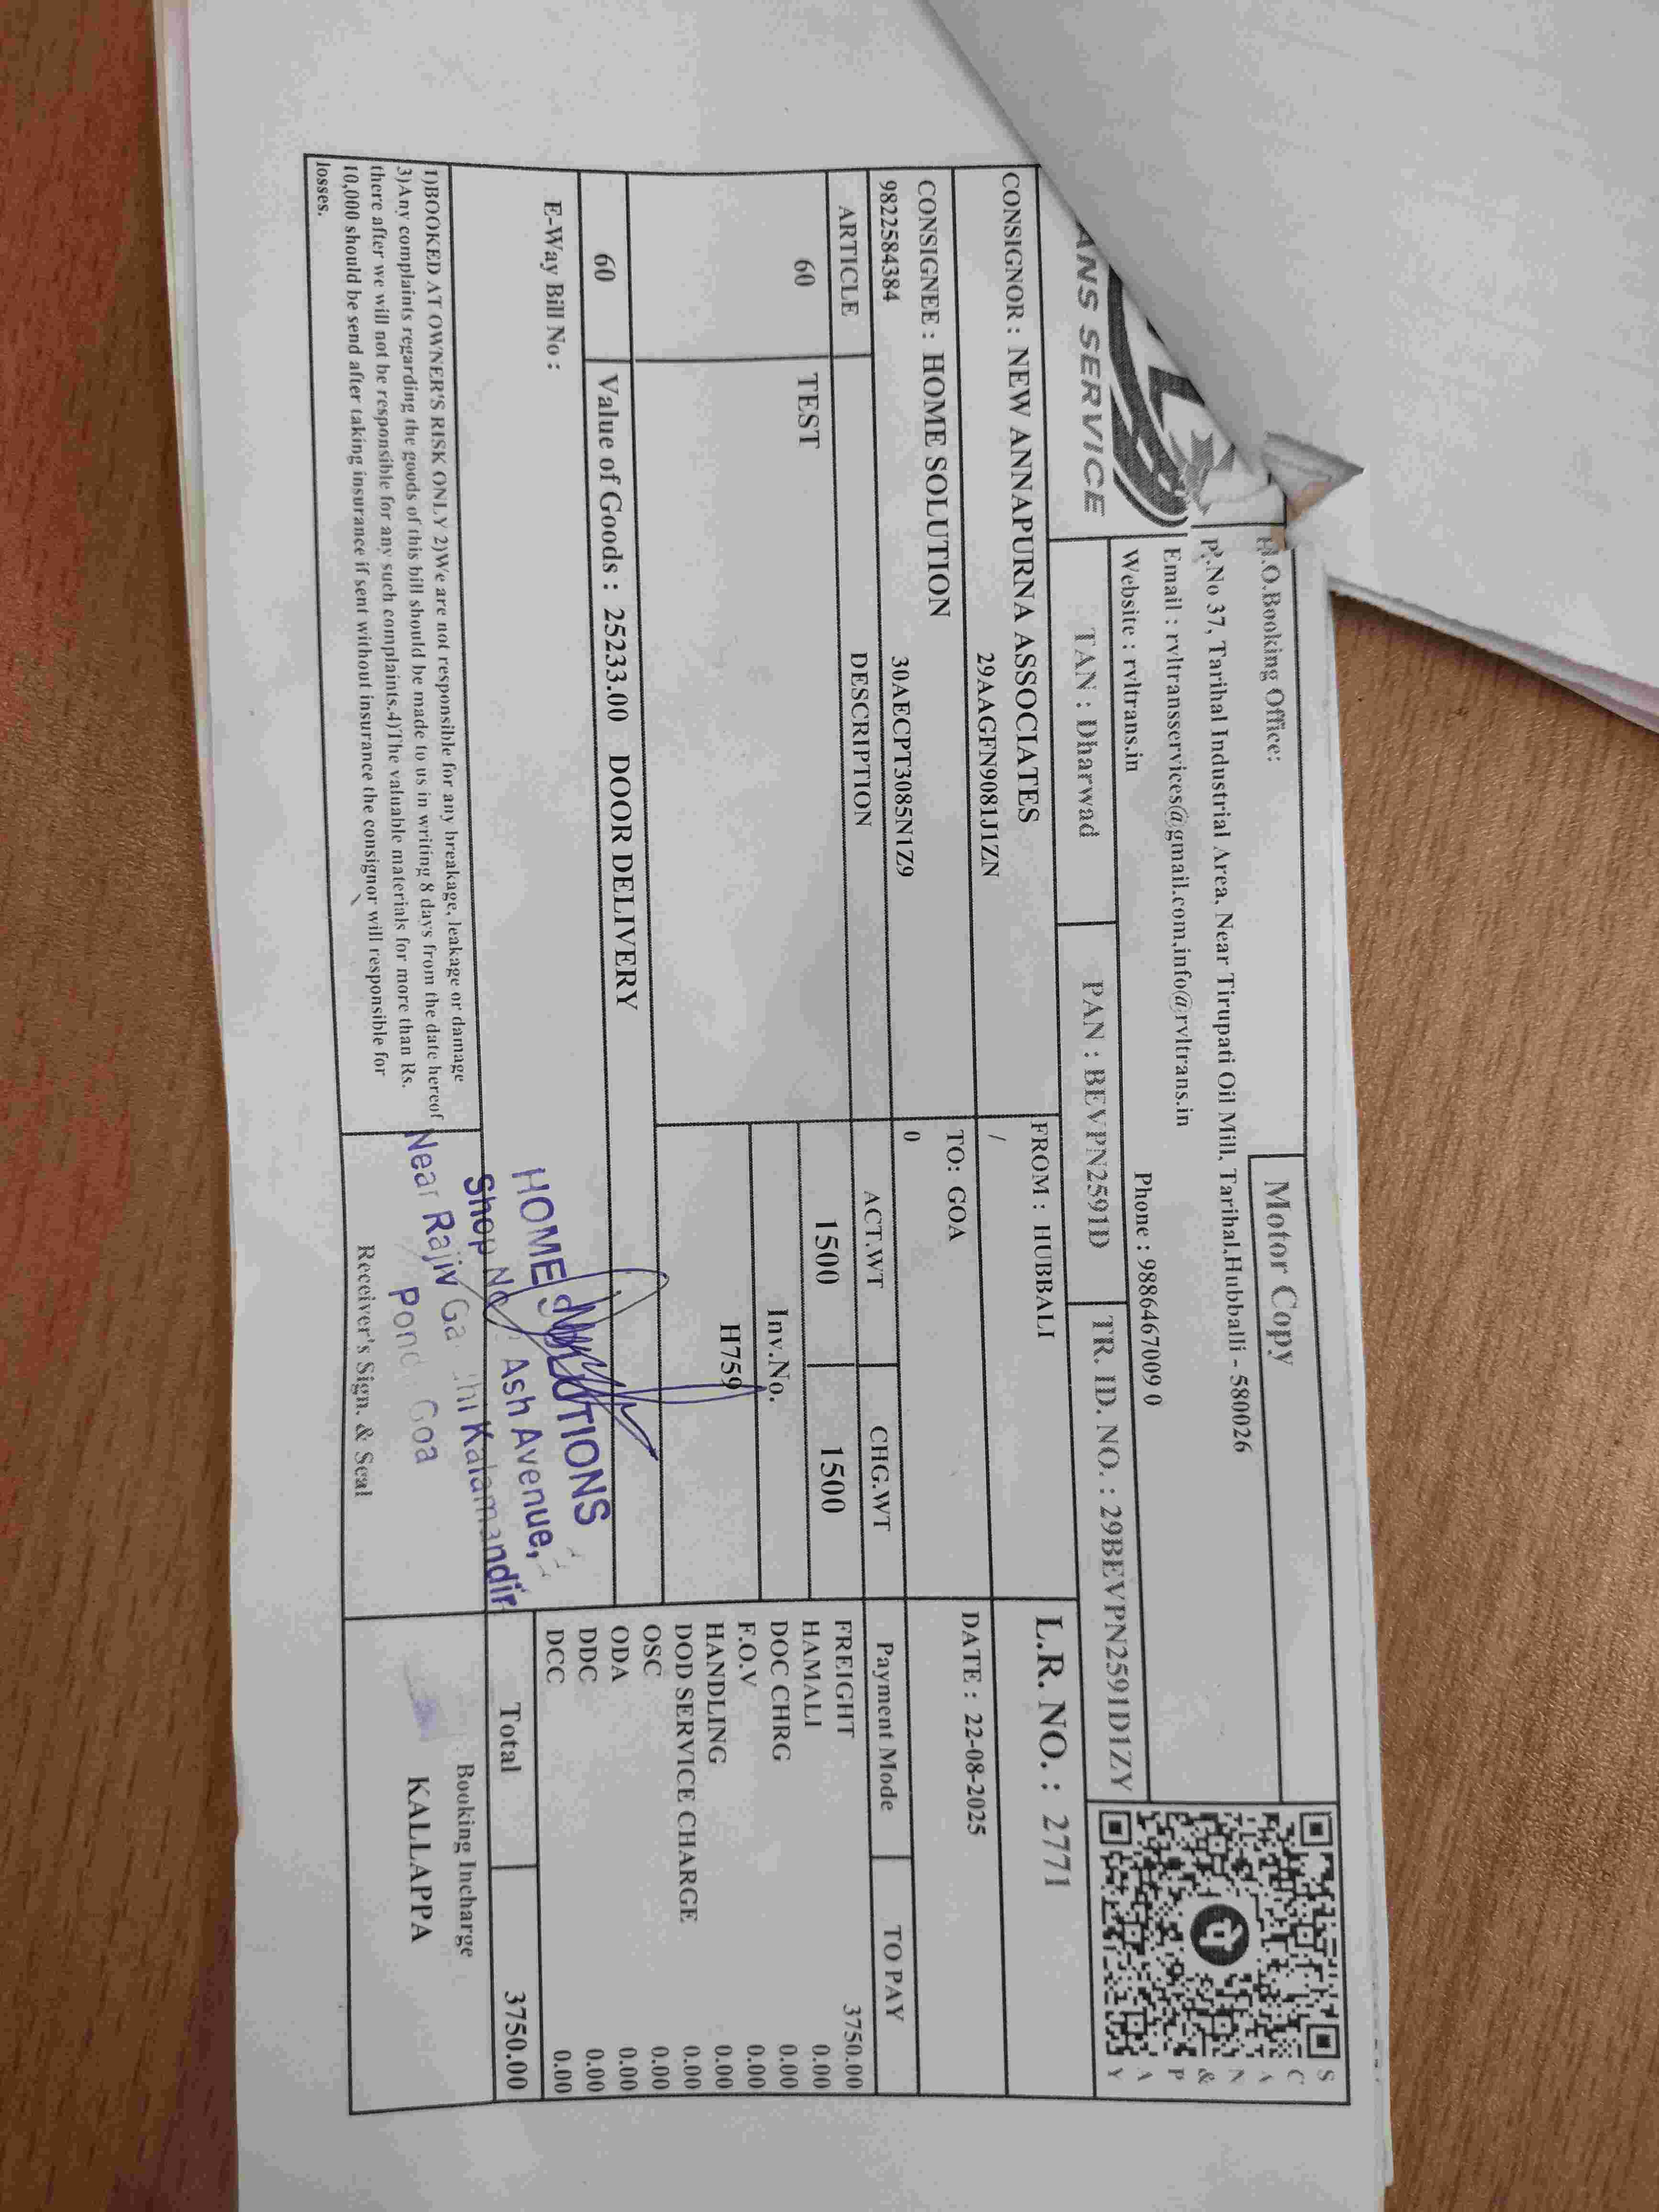 ANS SERVICE
H.O.Booking Office:
Motor Copy
P.No 37, Tarihal Industrial Area, Near Tirupati Oil Mill, Tarihal,Hubballi - 580026
Email : rvltransservices@gmail.com,info@rvltrans.in
Website : rvltrans.in Phone : 9886467009 0
SCAN & PAY
TAN : Dharwad PAN : BEVPN2591D TR. ID. NO. : 29BEVPN2591D1ZY
CONSIGNOR : NEW ANNAPURNA ASSOCIATES FROM : HUBBALI L.R. NO. : 2771
29AAGFN9081J1ZN /
CONSIGNEE : HOME SOLUTION TO: GOA DATE : 22-08-2025
9822584384 30AECPT3085N1Z9 0
ARTICLE DESCRIPTION ACT.WT CHG.WT Payment Mode TO PAY
60 TEST 1500 1500
FREIGHT 3750.00
HAMALI 0.00
Inv.No. DOC CHRG 0.00
F.O.V 0.00
H759 HANDLING 0.00
DOD SERVICE CHARGE 0.00
OSC 0.00
60 Value of Goods : 25233.00 DOOR DELIVERY ODA 0.00
DDC 0.00
DCC 0.00
E-Way Bill No :
Total 3750.00
HOME SOLUTIONS
Shop No Ash Avenue,
Near Rajiv Kalamandir
Goa
1)BOOKED AT OWNER'S RISK ONLY 2)We are not responsible for any breakage, leakage or damage
3)Any complaints regarding the goods of this bill should be made to us in writing 8 days from the date hereof
there after we will not be responsible for any such complaints.4)The valuable materials for more than Rs.
10,000 should be send after taking insurance if sent without insurance the consignor will responsible for
losses.
Receiver's Sign. & Seal
Booking Incharge
KALLAPPA